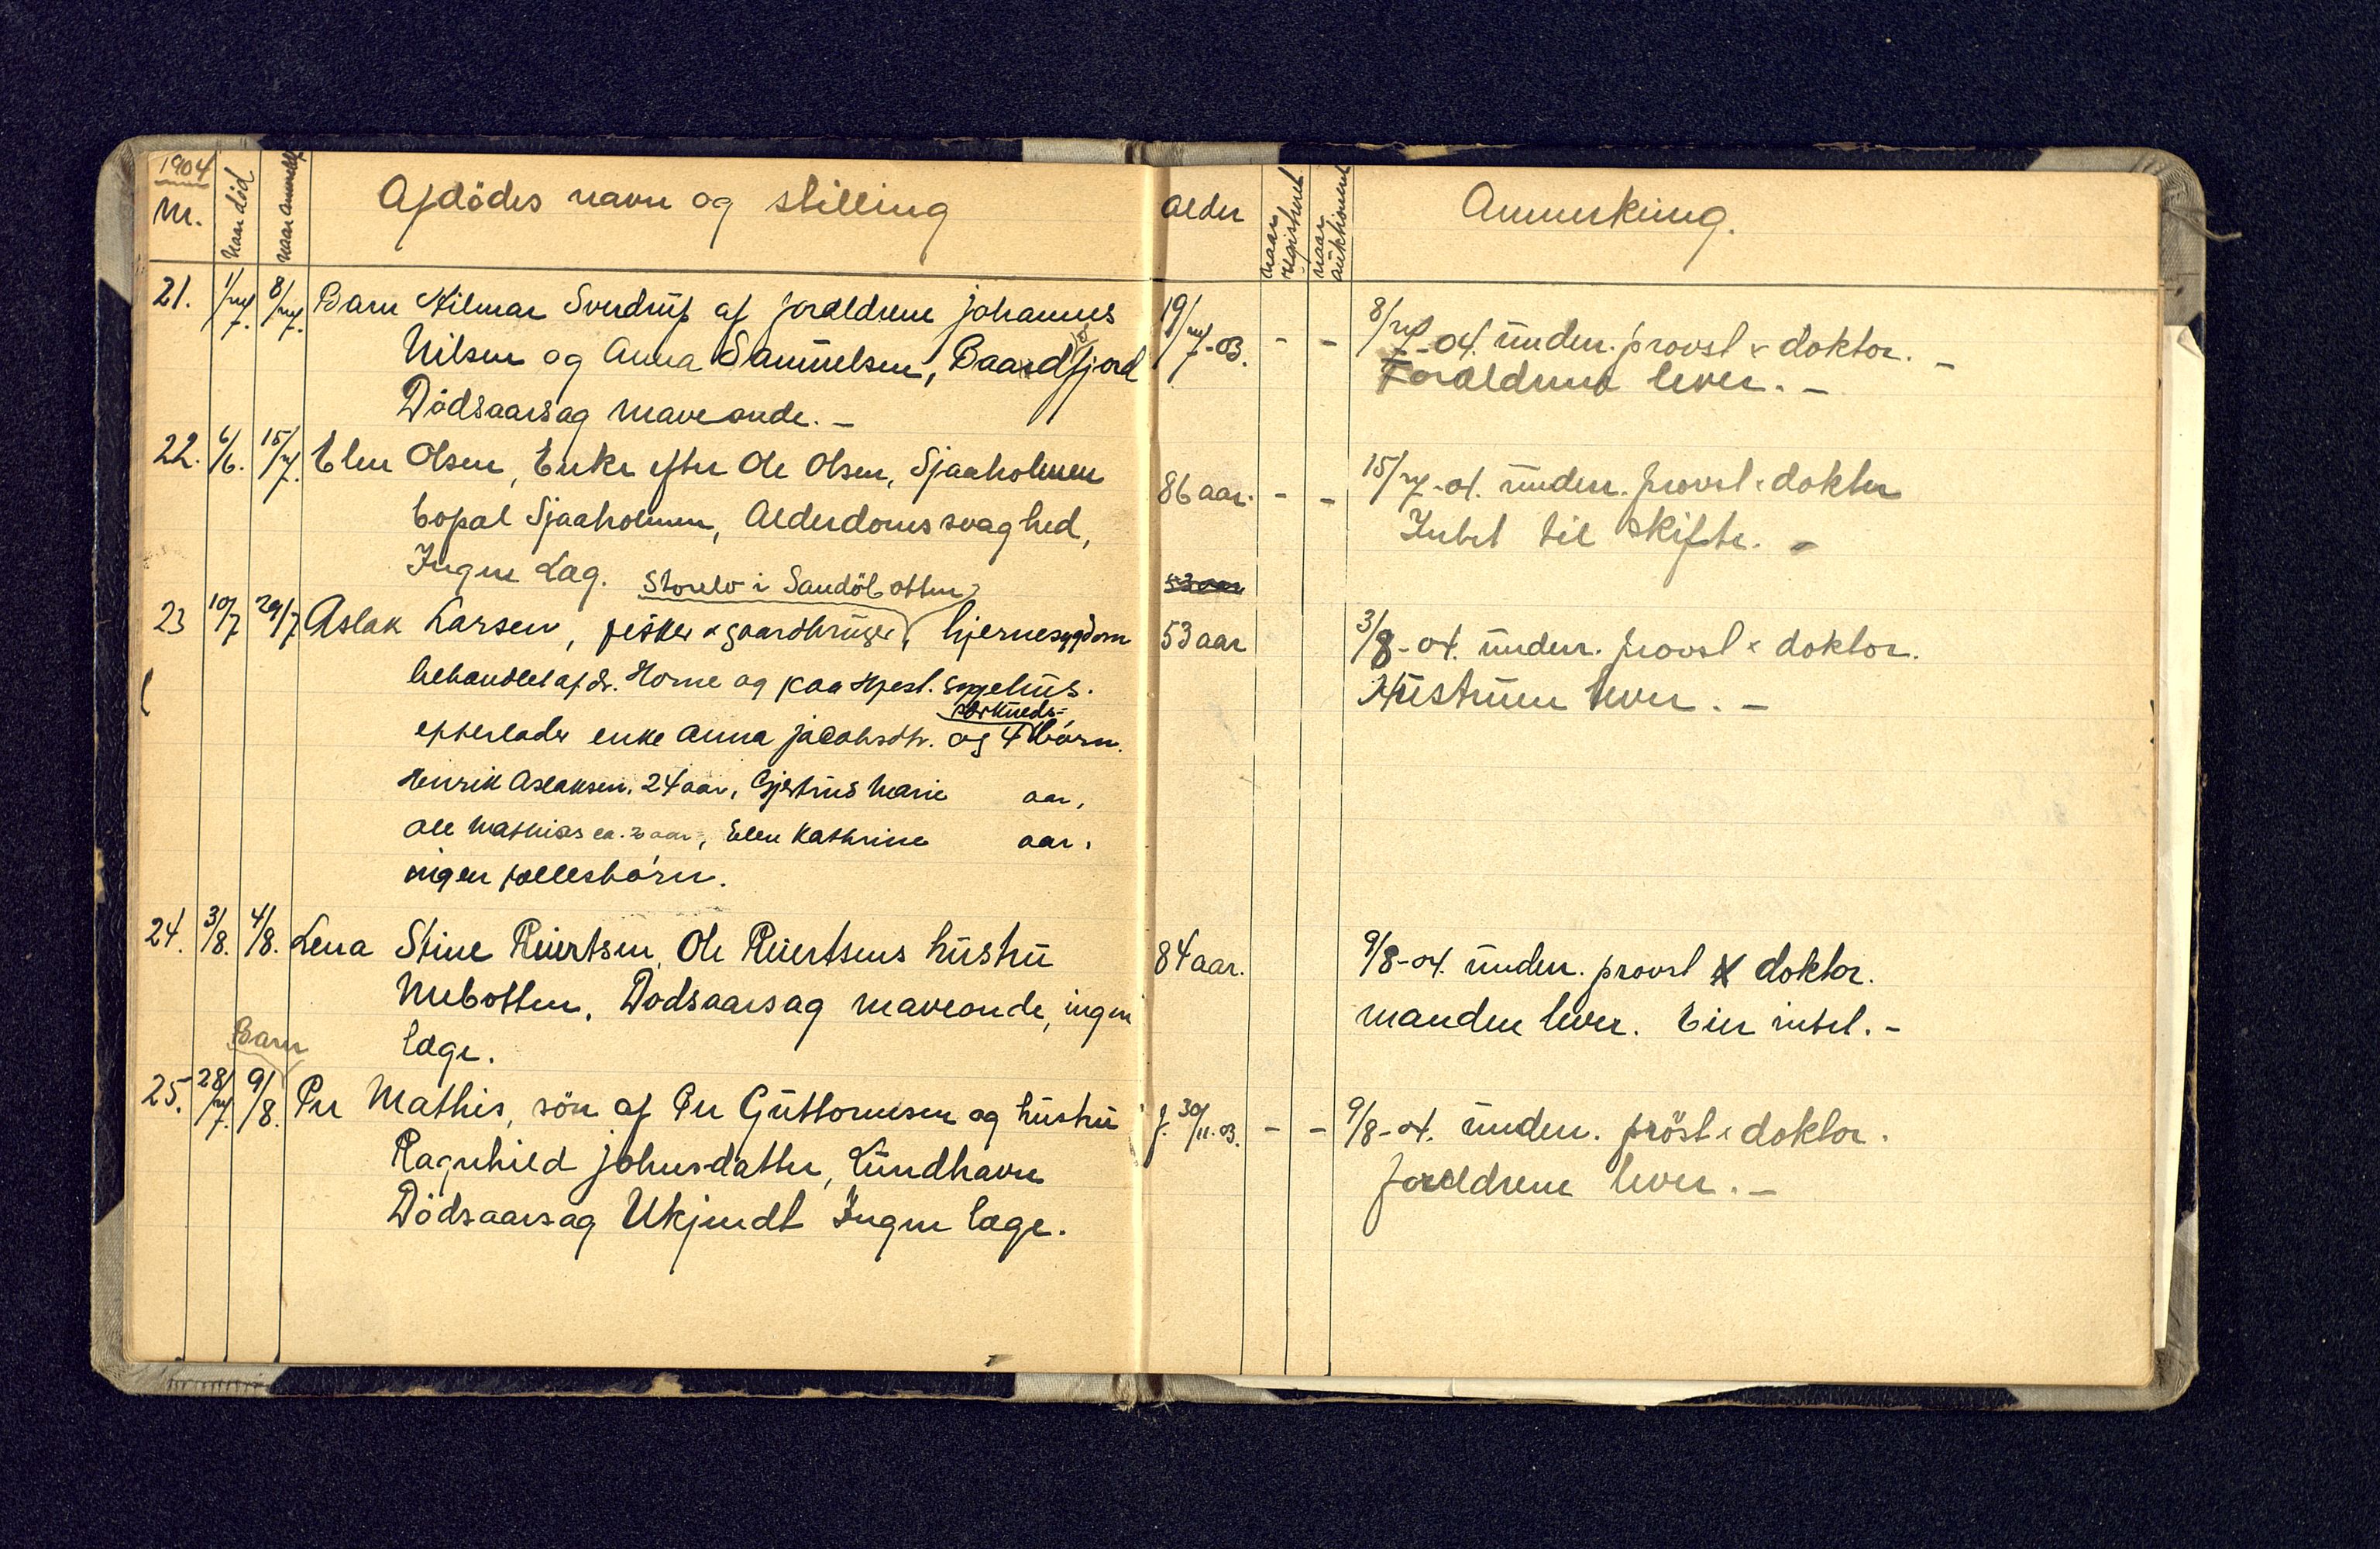 1904
Nr.
Naar död
Naar anmeldt
Afdödes navn og stilling
alder
naar registreret
naar auktioneret
Anmerkning.
21. 1/7. 8/7. Barn Hilmar Sverdrup af foraldrene johannes 19/7-03. - - 8/7-04. underr. provst & doktor. -
Nilsen og Anna Samuelsen, Baardsfjord Foraldrene lever. -
Dödsaarsag maveonde. -
22. 6/6. 15/7. Elen Olsen, Enke efter Ole Olsen, Sjaaholmen 86 aar. - - 15/7-04. underr. provst & dokter
bopal Sjaaholmen, Alderdomssvaghed, Intet til skifte. -
Ingen Læg. Storelv i Sandöbotten 53 aar
23 10/7 29/7 Aslak Larsen, fisker & gaardbruger, hjernesygdom 53 aar 3/8-04. underr. provst & doktor.
behandlet af dr. Horne og paa Hfest. sygehus. Hustruen lever. -
særkueds-
efterlader enke Anna jacobsdtr. og 4 börn.
Henrik Aslaksen, 24 aar, Gjertrud Marie aar,
Ole Mathias ca. 20 aar, Elen Kathrine aar.
ingen fællesbörn.
24. 3/8. 4/8. Lena Stine Reiertsen, Ole Reiertsens hustru 84 aar. 9/8-04. underr. provst & doktor.
Mebotten. Dödsaarsag maveonde, ingen manden lever. Eier intet. -
læge.
Barn
25. 28/7. 9/8. Per Mathis, sön af Per Guttormsen og hustru f. 30/11-03. - - 9/8-04. underr. pröst & doktor.
Ragnhild johnsdatter, Lundhavn foraldrene lever. -
Dödsaarsag Ukjendt Ingen læge.